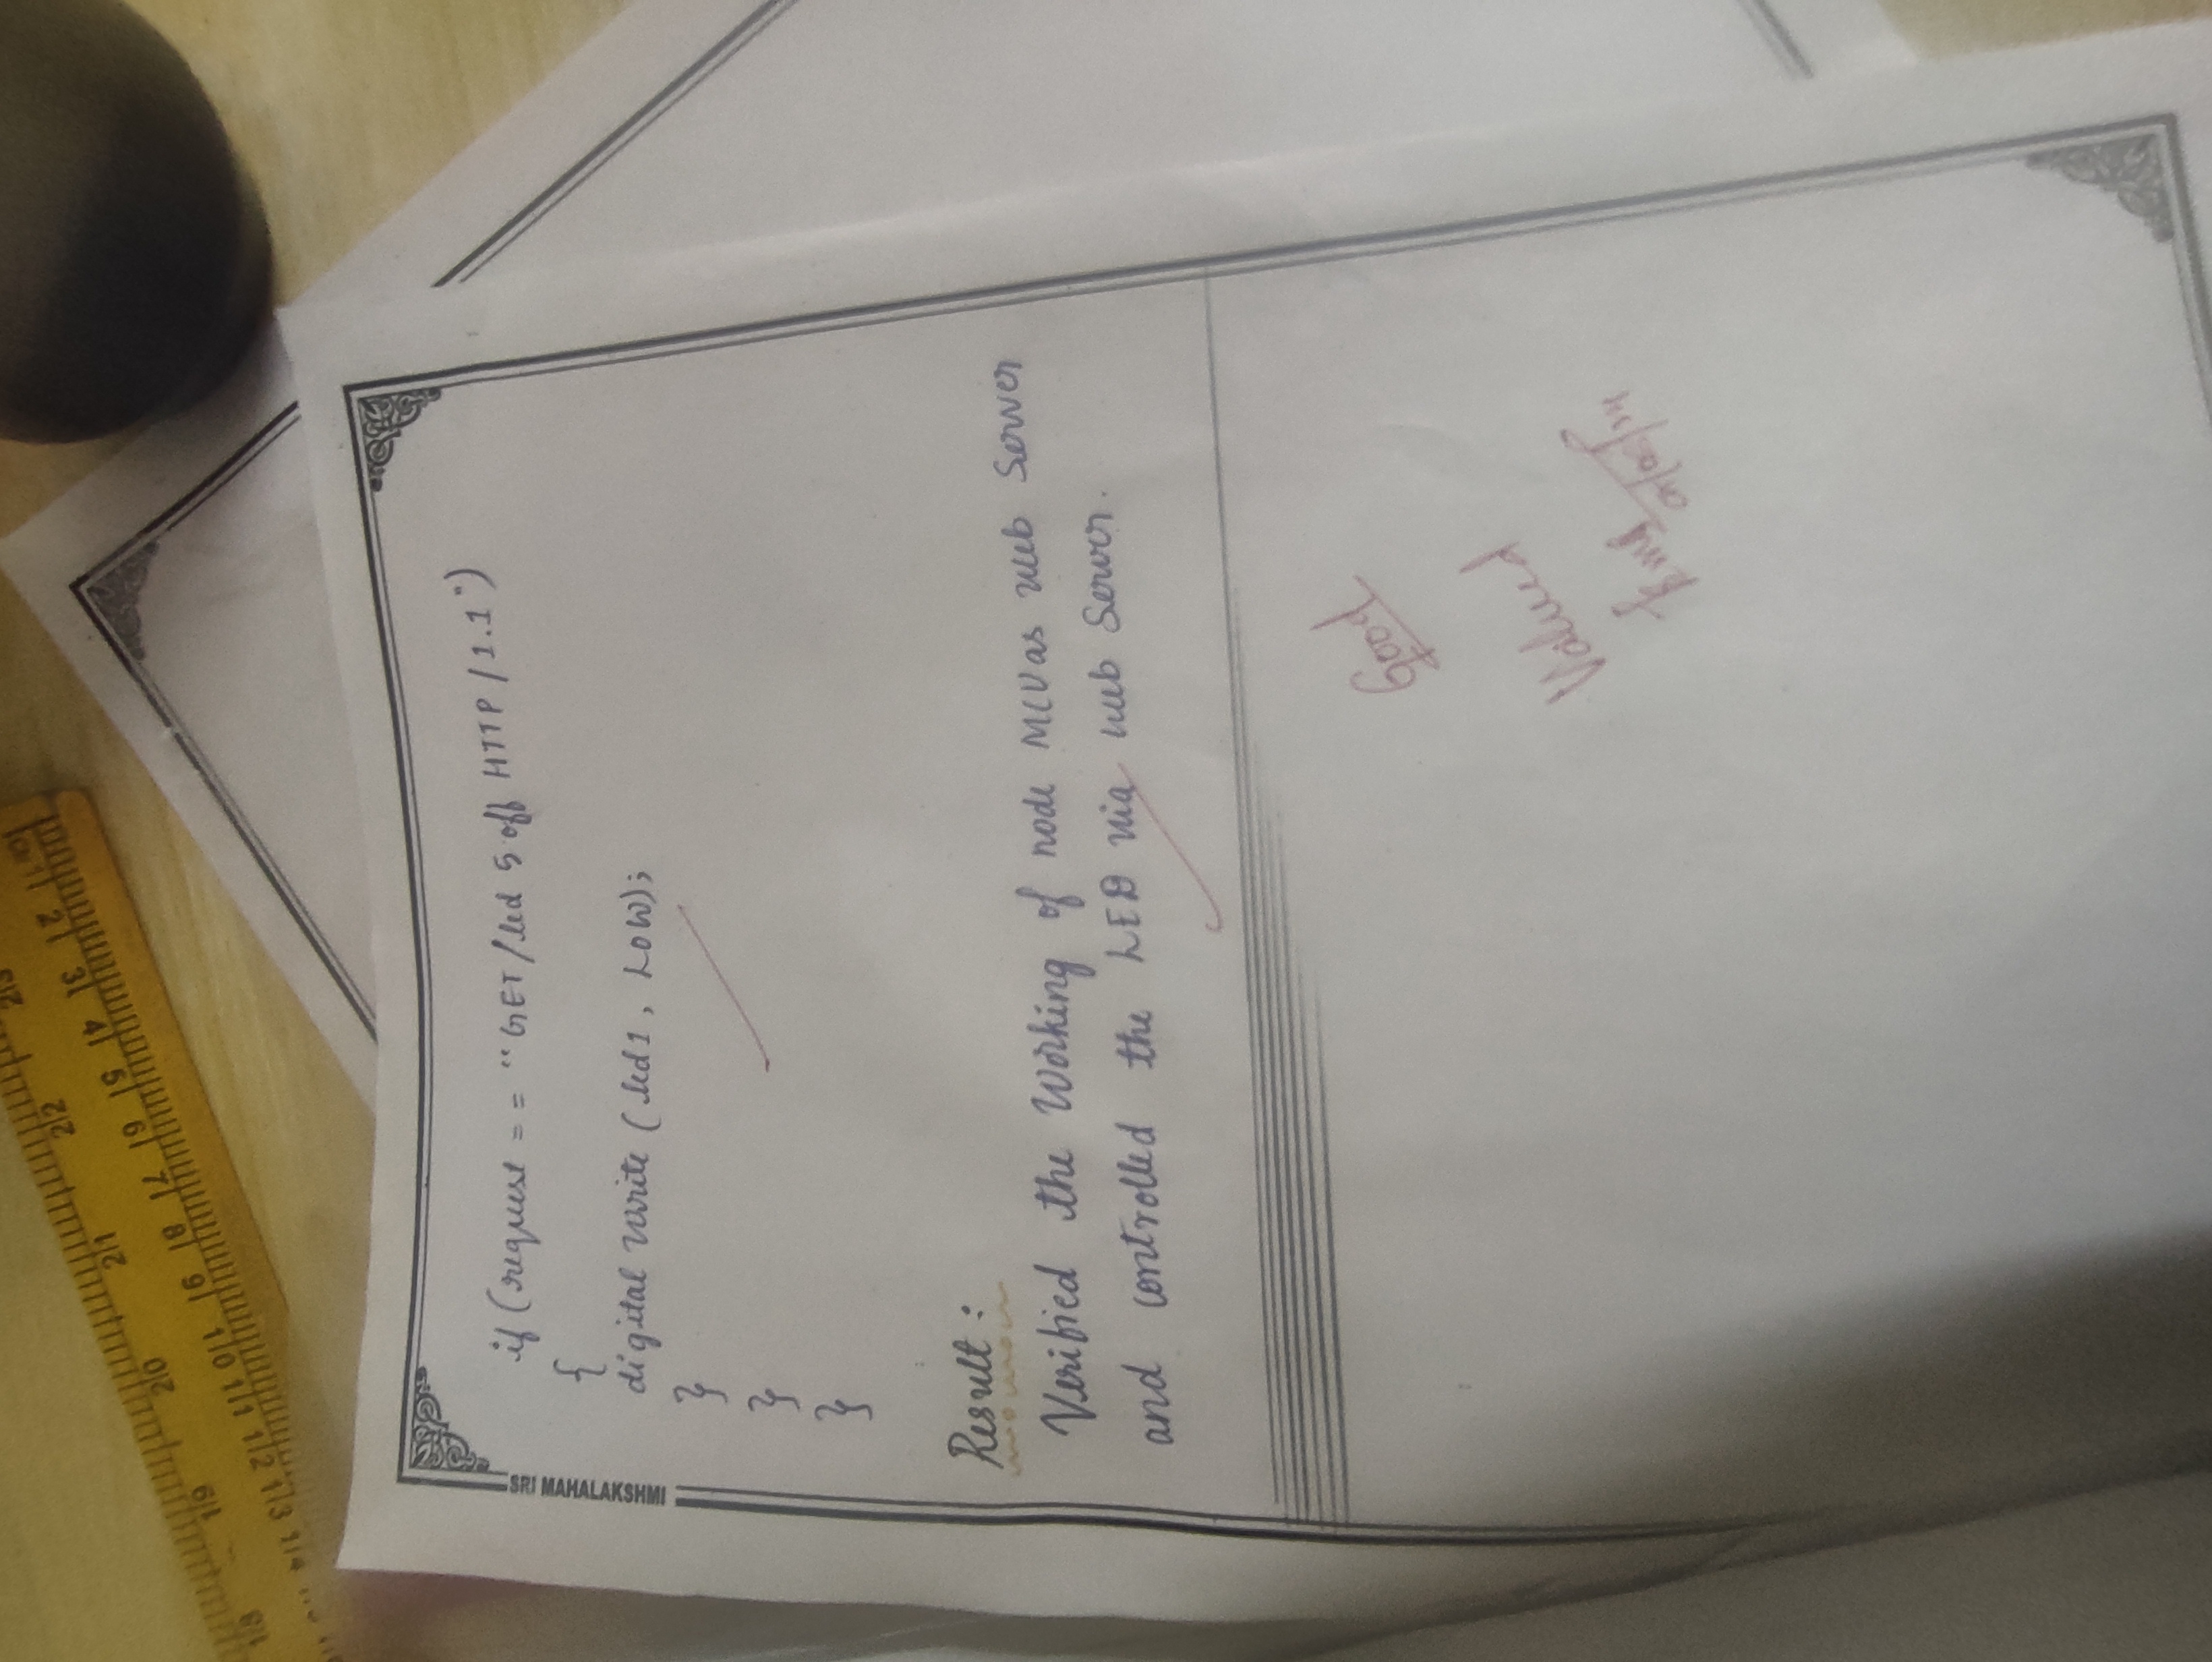 23
22
21
20
19
18
1 2 3 4 5 6 7 8 9 10 11 12 13 14
SRI MAHALAKSHMI
if (request == "GET/led 5 off HTTP/1.1")
{
digital write (led1, LOW);
}
}
}
Result:
Verified the Working of node MCU as web Server
and controlled the LED via web Server.
Good
Valued